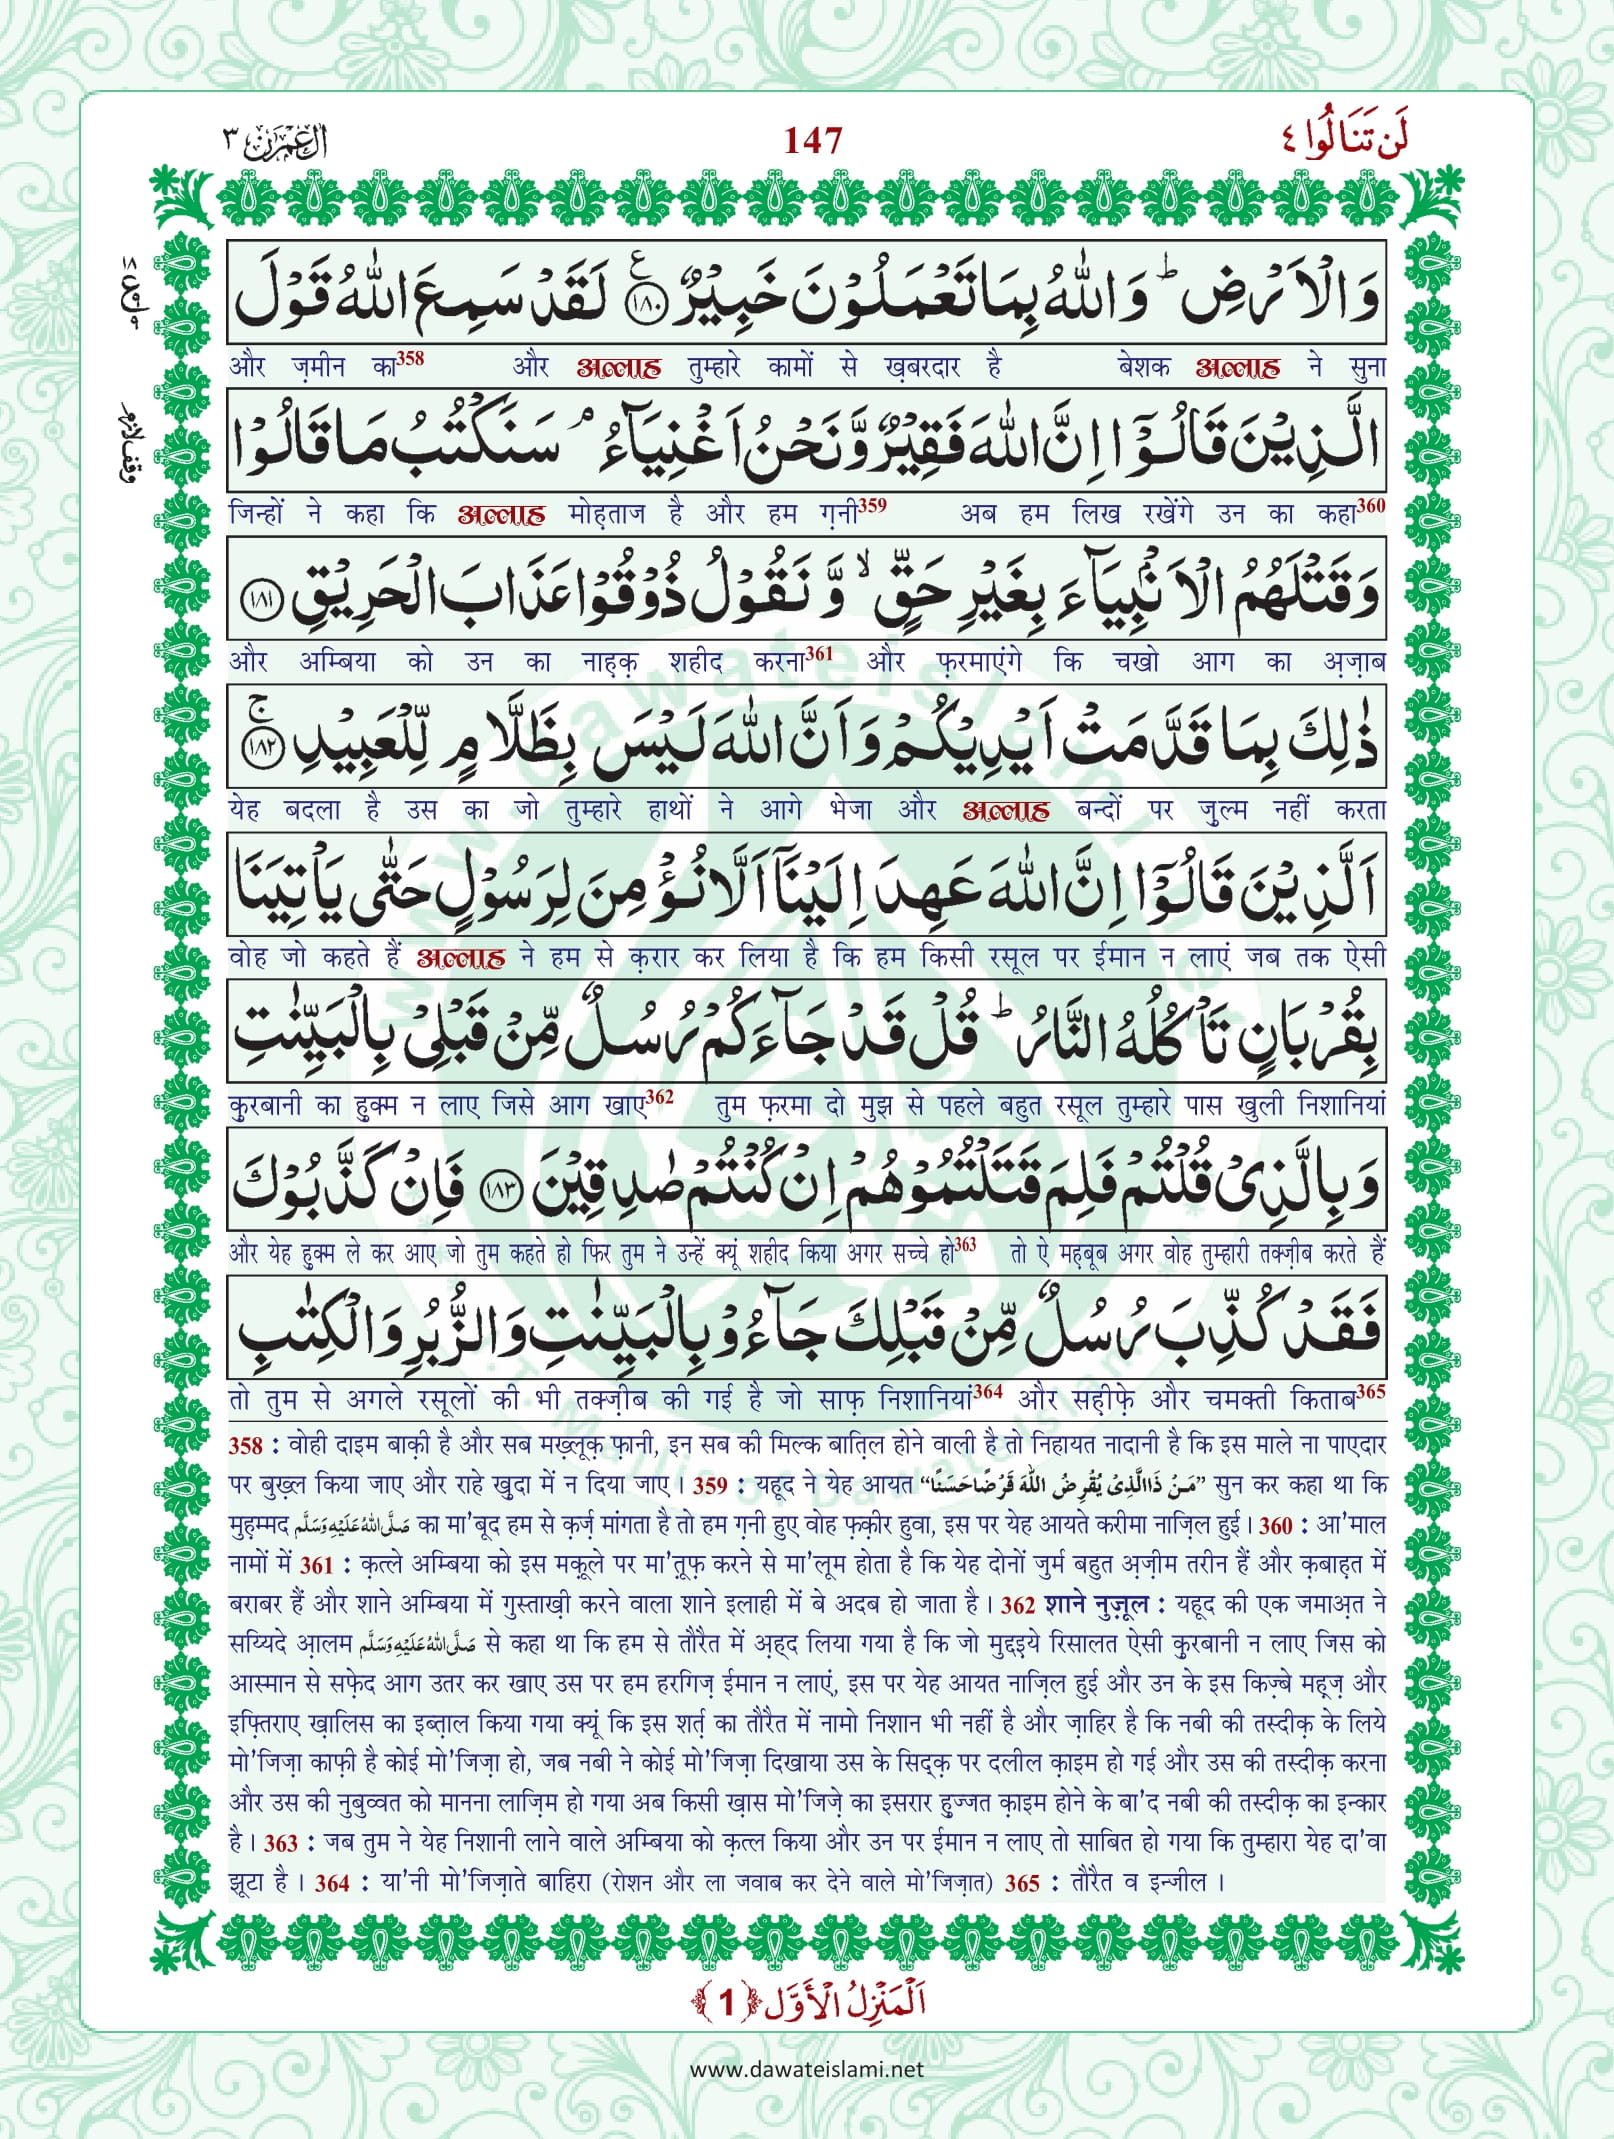 لَنْ تَنَالُوا ٤
147
اٰلِ عِمْرٰن ٣
وَالْاَرْضِ ؕ وَاللّٰهُ بِمَا تَعْمَلُوْنَ خَبِیْرٌ ﴿۱۸۰﴾ لَقَدْ سَمِعَ اللّٰهُ قَوْلَ
और ज़मीन का358 और अल्लाह तुम्हारे कामों से ख़बरदार है बेशक अल्लाह ने सुना
الَّذِیْنَ قَالُوْۤا اِنَّ اللّٰهَ فَقِیْرٌ وَّ نَحْنُ اَغْنِیَآءُ ۘ سَنَكْتُبُ مَا قَالُوْا
जिन्हों ने कहा कि अल्लाह मोह़ताज है और हम ग़नी359 अब हम लिख रखेंगे उन का कहा360
وَ قَتْلَهُمُ الْاَنْۢبِیَآءَ بِغَیْرِ حَقٍّ ۙ وَّ نَقُوْلُ ذُوْقُوْا عَذَابَ الْحَرِیْقِ ﴿۱۸۱﴾
और अम्बिया को उन का नाह़क़ शहीद करना361 और फ़रमाएंगे कि चखो आग का अ़ज़ाब
ذٰلِكَ بِمَا قَدَّمَتْ اَیْدِیْكُمْ وَ اَنَّ اللّٰهَ لَیْسَ بِظَلَّامٍ لِّلْعَبِیْدِ ﴿۱۸۲﴾ ۚ
येह बदला है उस का जो तुम्हारे हाथों ने आगे भेजा और अल्लाह बन्दों पर ज़ुल्म नहीं करता
اَلَّذِیْنَ قَالُوْۤا اِنَّ اللّٰهَ عَهِدَ اِلَیْنَاۤ اَلَّا نُؤْمِنَ لِرَسُوْلٍ حَتّٰى یَاْتِیَنَا
वोह जो कहते हैं अल्लाह ने हम से क़रार कर लिया है कि हम किसी रसूल पर ईमान न लाएं जब तक ऐसी
بِقُرْبَانٍ تَاْكُلُهُ النَّارُ ؕ قُلْ قَدْ جَآءَكُمْ رُسُلٌ مِّنْ قَبْلِیْ بِالْبَیِّنٰتِ
क़ुरबानी का हुक्म न लाए जिसे आग खाए362 तुम फ़रमा दो मुझ से पहले बहुत रसूल तुम्हारे पास खुली निशानियां
وَ بِالَّذِیْ قُلْتُمْ فَلِمَ قَتَلْتُمُوْهُمْ اِنْ كُنْتُمْ صٰدِقِیْنَ ﴿۱۸۳﴾ فَاِنْ كَذَّبُوْكَ
और येह हुक्म ले कर आए जो तुम कहते हो फिर तुम ने उन्हें क्यूं शहीद किया अगर सच्चे हो363 तो ऐ मह़बूब अगर वोह तुम्हारी तक्ज़ीब करते हैं
فَقَدْ كُذِّبَ رُسُلٌ مِّنْ قَبْلِكَ جَآءُوْ بِالْبَیِّنٰتِ وَ الزُّبُرِ وَ الْكِتٰبِ
तो तुम से अगले रसूलों की भी तक्ज़ीब की गई है जो साफ़ निशानियां364 और सह़ीफ़े और चमक्ती किताब365
358 : वोही दाइम बाक़ी है और सब मख़्लूक़ फ़ानी, इन सब की मिल्क बात़िल होने वाली है तो निहायत नादानी है कि इस माले ना पाएदार
पर बुख़्ल किया जाए और राहे ख़ुदा में न दिया जाए । 359 : यहूद ने येह आयत “مَنْ ذَا الَّذِیْ یُقْرِضُ اللّٰهَ قَرْضًا حَسَنًا” सुन कर कहा था कि
मुह़म्मद صَلَّى اللهُ عَلَيْهِ وَسَلَّم का मा'बूद हम से क़र्ज़ मांगता है तो हम ग़नी हुए वोह फ़क़ीर हुवा, इस पर येह आयते करीमा नाज़िल हुई । 360 : आ'माल
नामों में 361 : क़त्ले अम्बिया को इस मक़ूले पर मा'त़ूफ़ करने से मा'लूम होता है कि येह दोनों जुर्म बहुत अ़ज़ीम तरीन हैं और क़बाह़त में
बराबर हैं और शाने अम्बिया में गुस्ताख़ी करने वाला शाने इलाही में बे अदब हो जाता है । 362 शाने नुज़ूल : यहूद की एक जमाअ़त ने
सय्यिदे आ़लम صَلَّى اللهُ عَلَيْهِ وَسَلَّم से कहा था कि हम से तौरैत में अ़ह्द लिया गया है कि जो मुद्दइये रिसालत ऐसी क़ुरबानी न लाए जिस को
आस्मान से सफ़ेद आग उतर कर खाए उस पर हम हरगिज़ ईमान न लाएं, इस पर येह आयत नाज़िल हुई और उन के इस किज़्बे मह़्ज़ और
इफ़्तिराए ख़ालिस का इब्त़ाल किया गया क्यूं कि इस शर्त़ का तौरैत में नामो निशान भी नहीं है और ज़ाहिर है कि नबी की तस्दीक़ के लिये
मो'जिज़ा काफ़ी है कोई मो'जिज़ा हो, जब नबी ने कोई मो'जिज़ा दिखाया उस के सिद्क़ पर दलील क़ाइम हो गई और उस की तस्दीक़ करना
और उस की नुबुव्वत को मानना लाज़िम हो गया अब किसी ख़ास मो'जिज़े का इसरार हुज्जत क़ाइम होने के बा'द नबी की तस्दीक़ का इन्कार
है । 363 : जब तुम ने येह निशानी लाने वाले अम्बिया को क़त्ल किया और उन पर ईमान न लाए तो साबित हो गया कि तुम्हारा येह दा'वा
झूटा है । 364 : या'नी मो'जिज़ाते बाहिरा (रोशन और ला जवाब कर देने वाले मो'जिज़ात) 365 : तौरैत व इन्जील ।
اَلْمَنْزِلُ الْاَوَّل ﴿1﴾
www.dawateislami.net